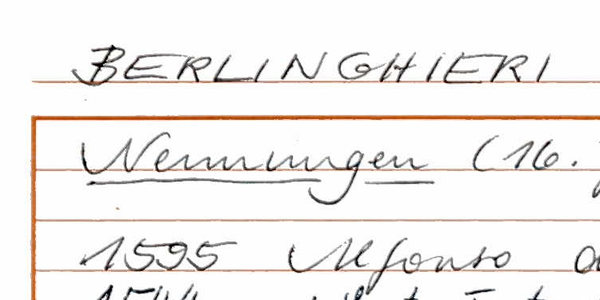 BERLINGHIERI
Nennungen (16.
1595 Alfonso